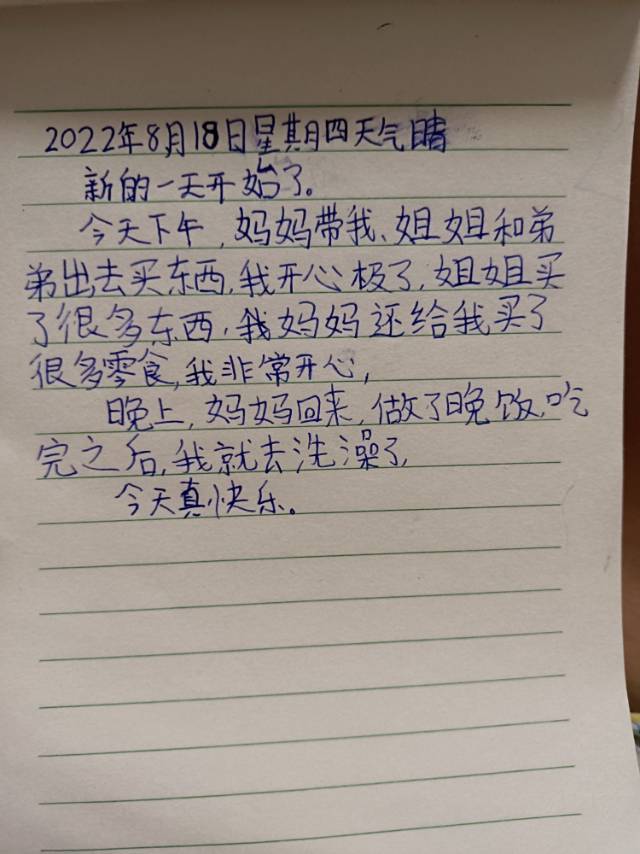 2022年8月18日星期四天气晴
新的一天开始了。
今天下午,妈妈带我、姐姐和弟
弟出去买东西,我开心极了,姐姐买
了很多东西,我妈妈还给我买了
很多零食,我非常开心,
晚上,妈妈回来,做了晚饭,吃
完之后,我就去洗澡了,
今天真快乐。